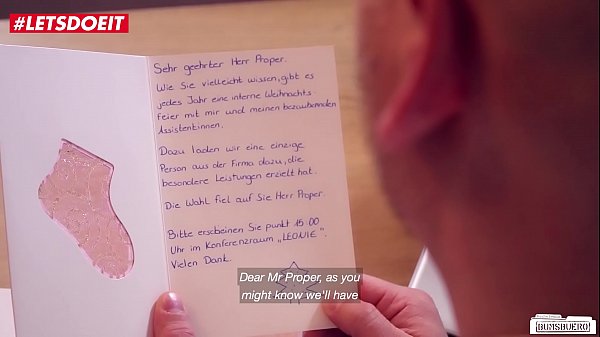 #LETSDOEIT
Sehr geehrter Herr Proper.
Wie Sie vielleicht wissen, gibt es
jedes Jahr eine interne Weihnachts-
feier mit mir und meinen bezaubernden
Assistentinnen.
Dazu laden wir eine einzige
Person aus der Firma dazu, die
besondere Leistungen erzielt hat.
Die Wahl fiel auf Sie Herr Proper.
Bitte erscheinen Sie punkt 15:00
Uhr im Konferenzraum „LEONIE".
Vielen Dank.
Dear Mr Proper, as you
might know we'll have
BUMSBUERO